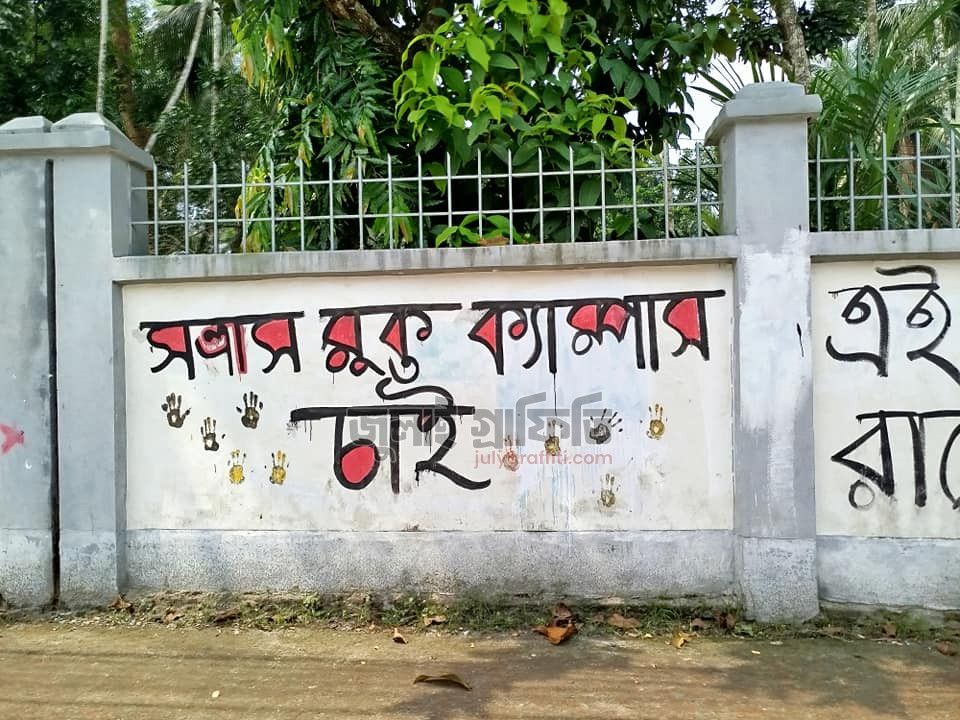 সন্ত্রাস মুক্ত ক্যাম্পাস
চাই
জুলাই গ্রাফিতি
julygraffiti.com
এই